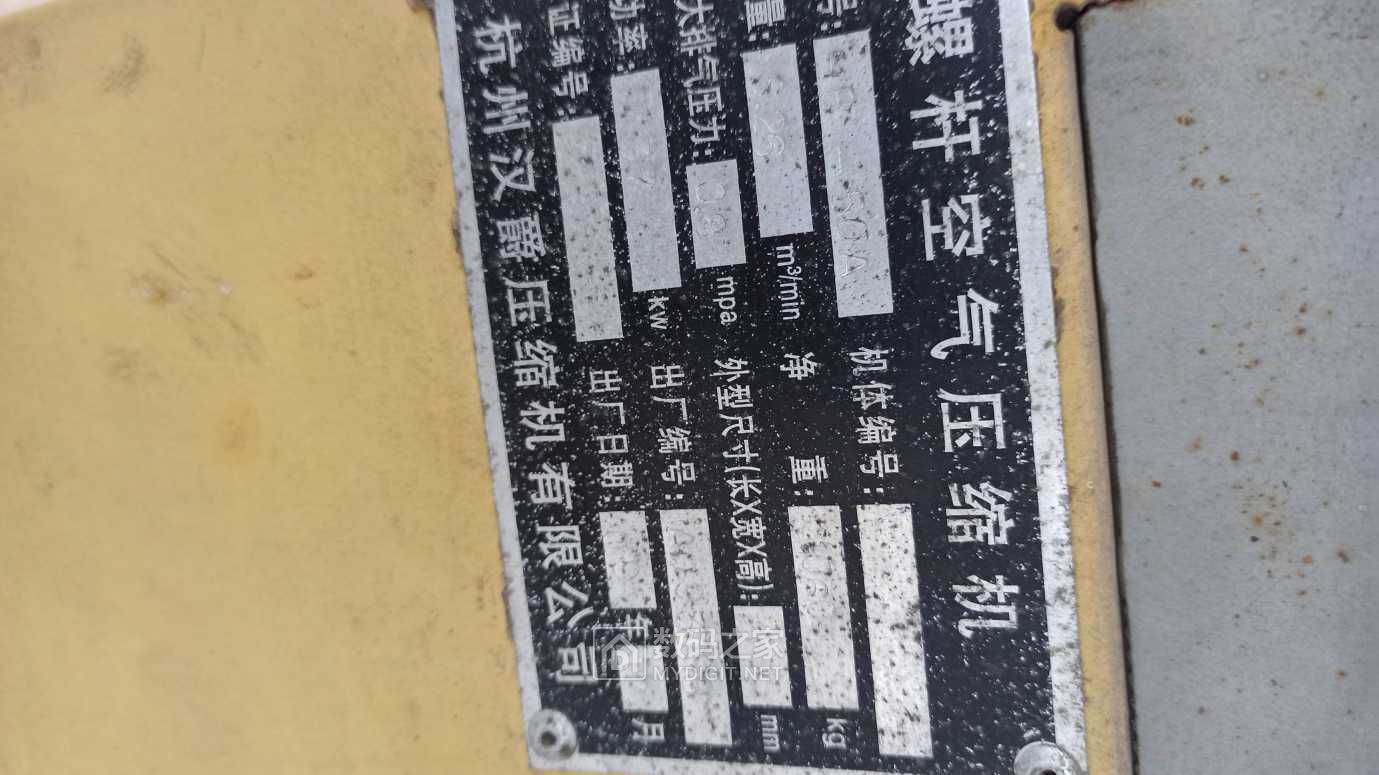 螺杆空气压缩机
号: -50A 机体编号:
量: 6.26 m³/min 净 重: kg
大排气压力: 0.8 mpa 外型尺寸(长X宽X高): mm
功率: 37 kw 出厂编号:
证编号: 出厂日期: 年 月
杭州汉爵压缩机有限公司
数码之家
MYDIGIT.NET